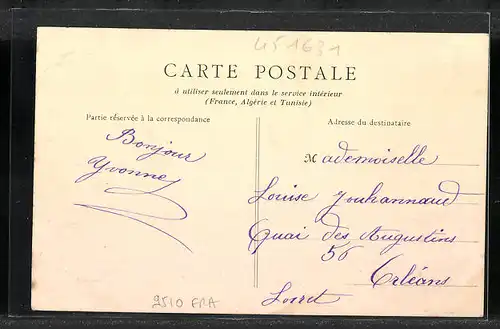 451631
CARTE POSTALE
à utiliser seulement dans le service intérieur
(France, Algérie et Tunisie)
Partie réservée à la correspondance
Adresse du destinataire
Bonjour
Yvonne
Mademoiselle
Louise Jouhannaud
Quai des Augustins
56
Orléans
Loiret
2510 FRA